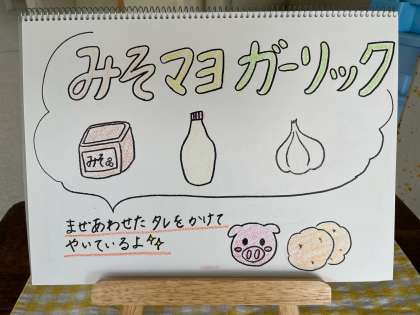 みそマヨガーリック
みそ
まぜあわせた タレをかけて
やいているよ